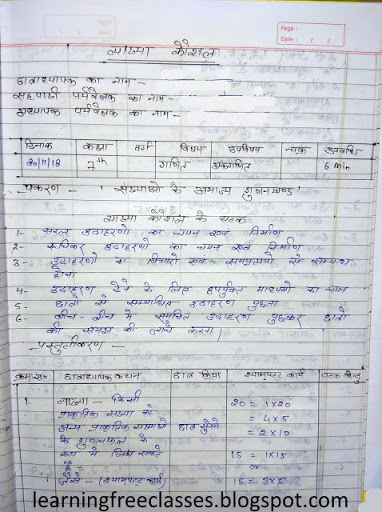 Page :
Date : / /
व्याख्या कौशल
छात्राध्यापक का नाम –
सहपाठी पर्यवेक्षक का नाम –
प्राध्यापक पर्यवेक्षक का नाम –
दिनांक कक्षा वर्ग विषय उपविषय चक्र अवधि
20/11/18 7th गणित अंकगणित 6 min
प्रकरण – "संख्याओं के अभाज्य गुणनखण्ड"
व्याख्या कौशल के घटक
1- सरल उदाहरणों का चयन एवं निर्माण
2- रूचिकर उदाहरणों का चयन एवं निर्माण
3- उदाहरणों का विचारों एवं सम्प्रत्ययों से सम्बन्ध
होना
4- उदाहरण देने के लिए उपर्युक्त माध्यमों का चयन
5- छात्रों से सम्बन्धित उदाहरण पूछना
6- बीच-बीच में समुचित उदाहरण पूछकर छात्रों
की समझ की जांच करना।
प्रस्तुतीकरण –
क्रम सं० छात्राध्यापक कथन छात्र क्रिया श्यामपट्ट कार्य घटक बिन्दु
1. व्याख्या – किसी 20 = 1×20
प्राकृतिक संख्या को = 4×5
अन्य प्राकृतिक संख्याओं छात्र सुनेंगे = 2×10
के गुणनफल के
रूप में लिख सकते 15 = 1×15
हैं – or
जैसे – (श्यामपट्ट कार्य) 15 = 3×5
learningfreeclasses.blogspot.com